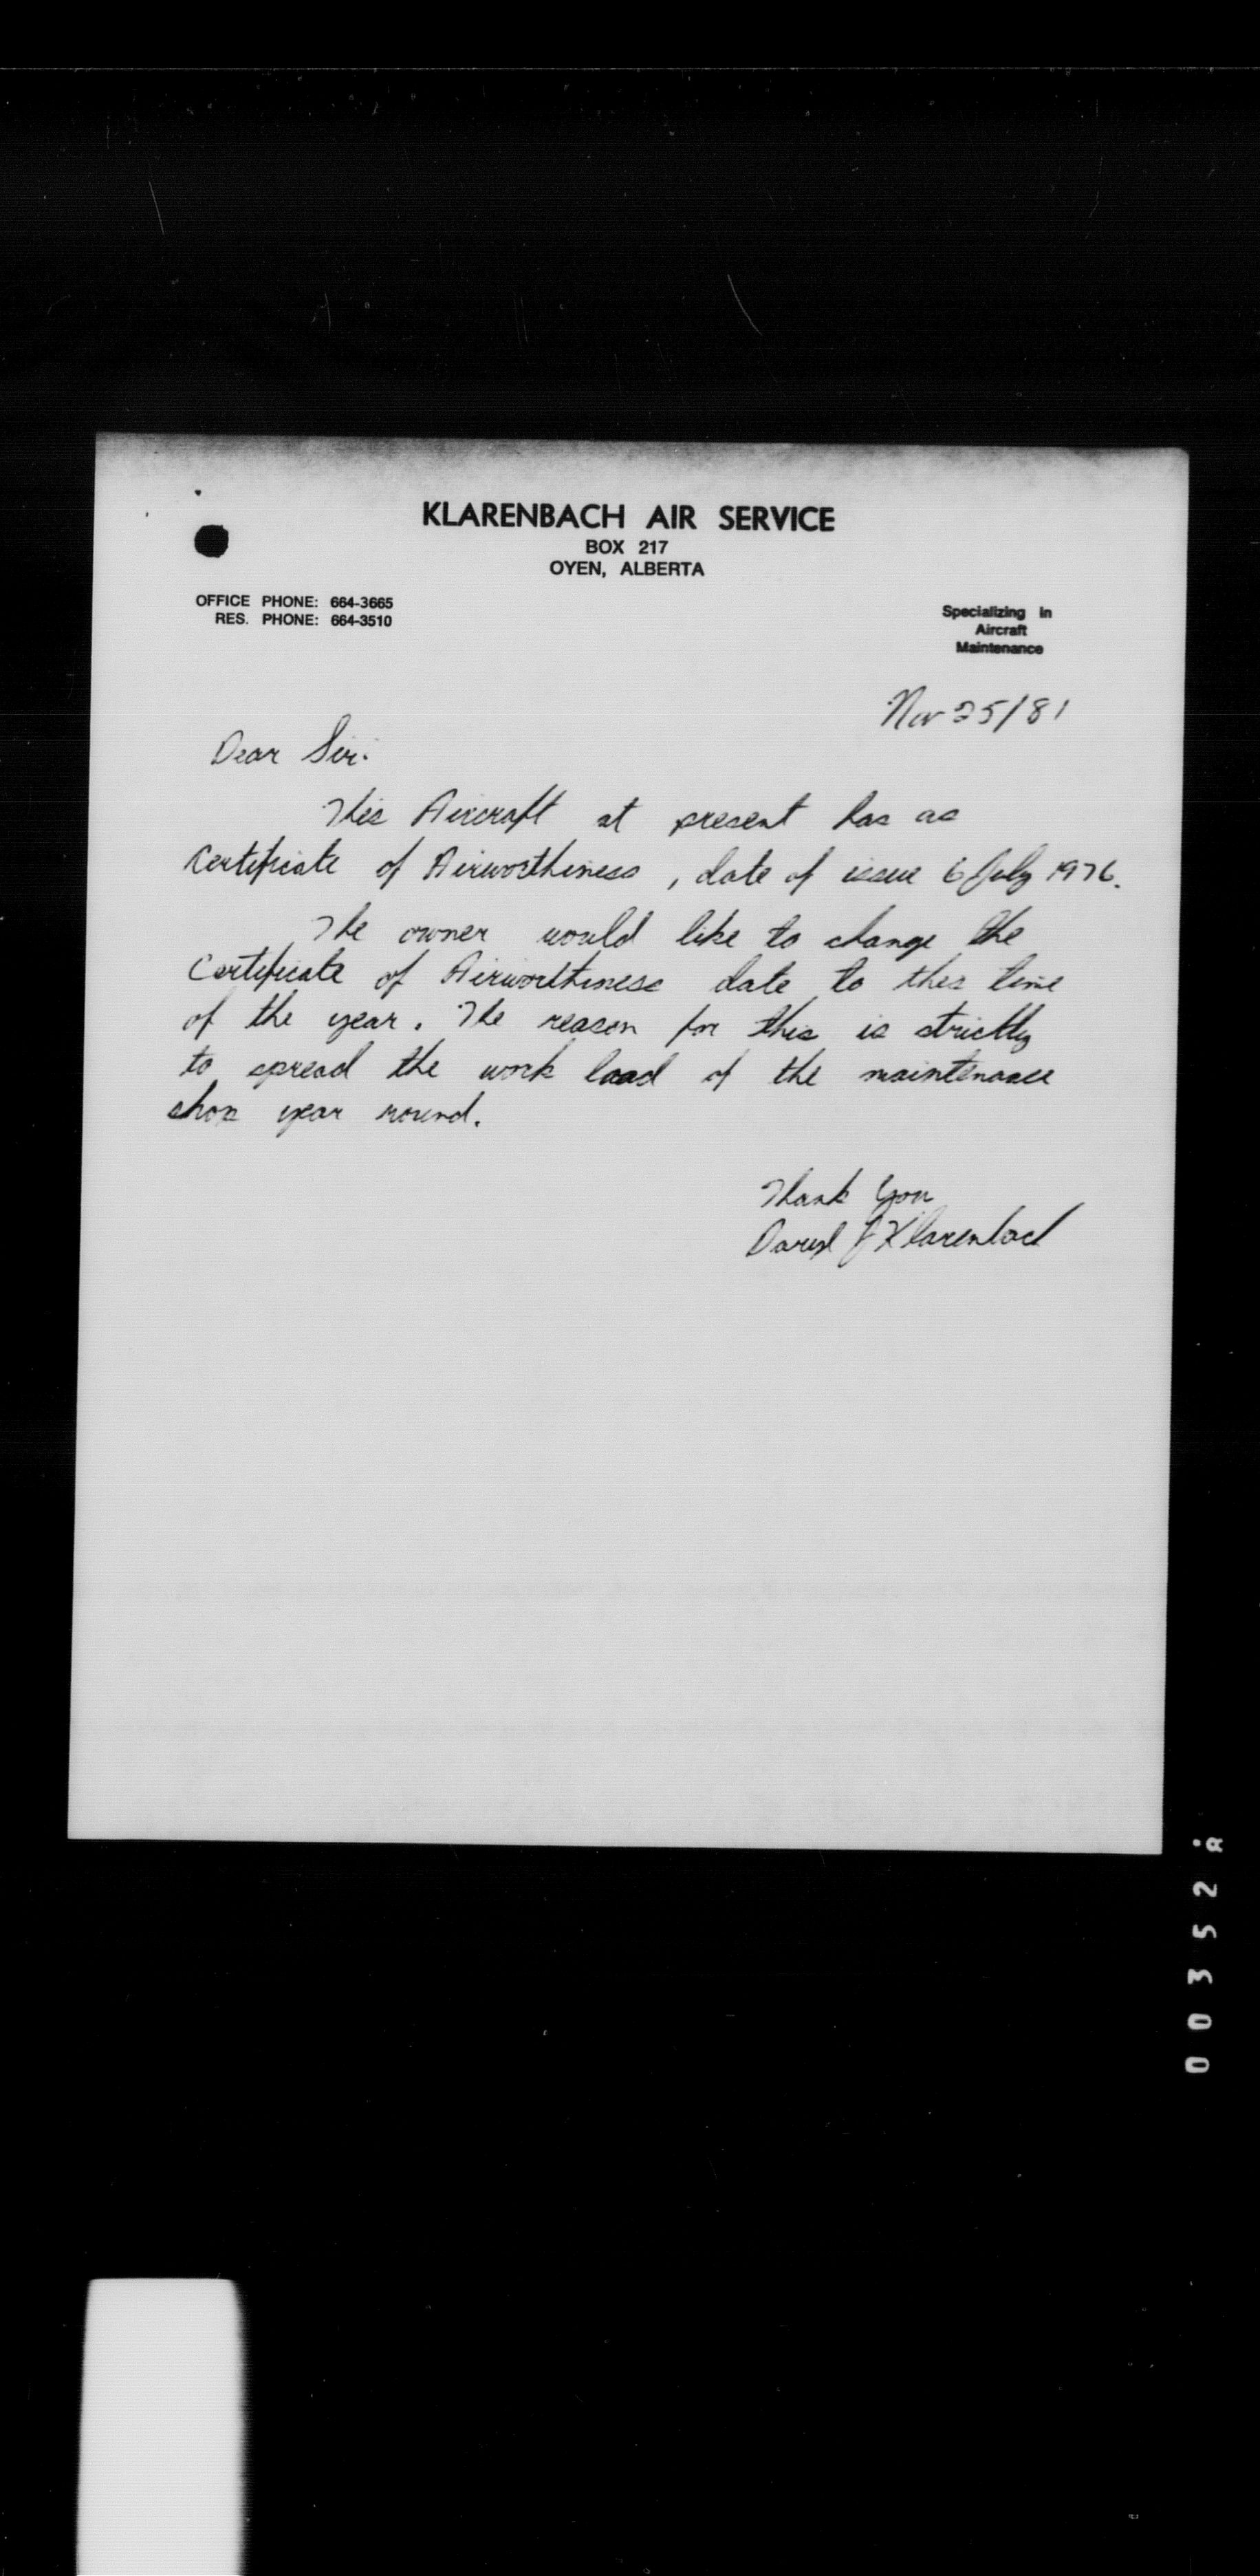 KLARENBACH AIR SERVICE
BOX 217
OYEN, ALBERTA
OFFICE PHONE: 664-3665
RES. PHONE: 664-3510
Specializing in
Aircraft
Maintenance
Nov 25/81
Dear Sir:
This Aircraft at present has as
Certificate of Airworthiness, date of issue 6 July 1976.
The owner would like to change the
Certificate of Airworthiness date to this time
of the year. The reason for this is strictly
to spread the work load of the maintenance
shop year round.
Thank You
Daryl J Klarenbach
003528